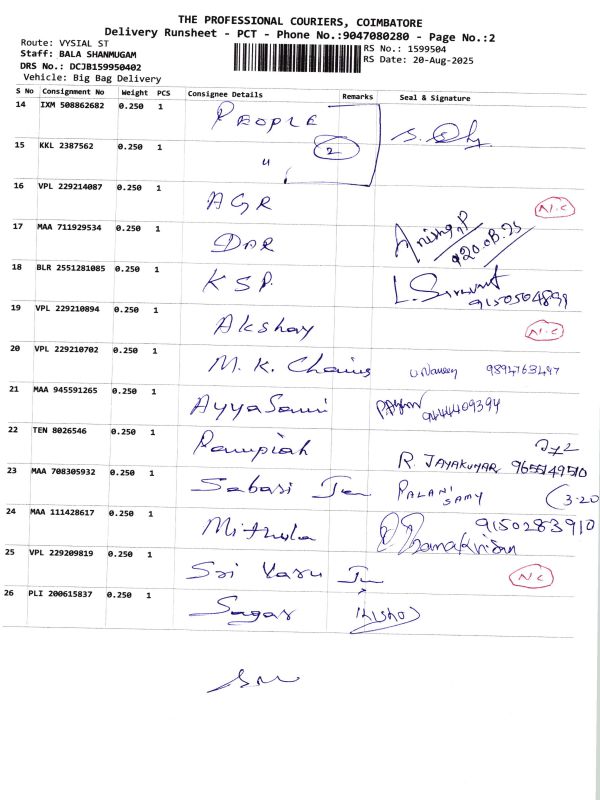 THE PROFESSIONAL COURIERS, COIMBATORE
Delivery Runsheet - PCT - Phone No.:9047080280 - Page No.:2
Route: VYSIAL ST
Staff: BALA SHANMUGAM
DRS No.: DCJB159950402
Vehicle: Big Bag Delivery
RS No.: 1599504
RS Date: 20-Aug-2025
S No Consignment No Weight PCS Consignee Details Remarks Seal & Signature
14 IXM 508862682 0.250 1 PEOPLE
15 KKL 2387562 0.250 1 " 2
16 VPL 229214087 0.250 1 AGR N.C
17 MAA 711929534 0.250 1 DAR
18 BLR 2551281085 0.250 1 KSP. 9150504899
19 VPL 229210894 0.250 1 Akshay N.C
20 VPL 229210702 0.250 1 M. K. Chains 9894763497
21 MAA 945591265 0.250 1 AyyaSami 9444409394
22 TEN 8026546 0.250 1 Pampiah R. JAYAKUMAR 9655149510
23 MAA 708305932 0.250 1 Sabari PALANI SAMY 3.20
24 MAA 111428617 0.250 1 Mithula 9150283910
25 VPL 229209819 0.250 1 Sri Varu NC
26 PLI 200615837 0.250 1 Sagar